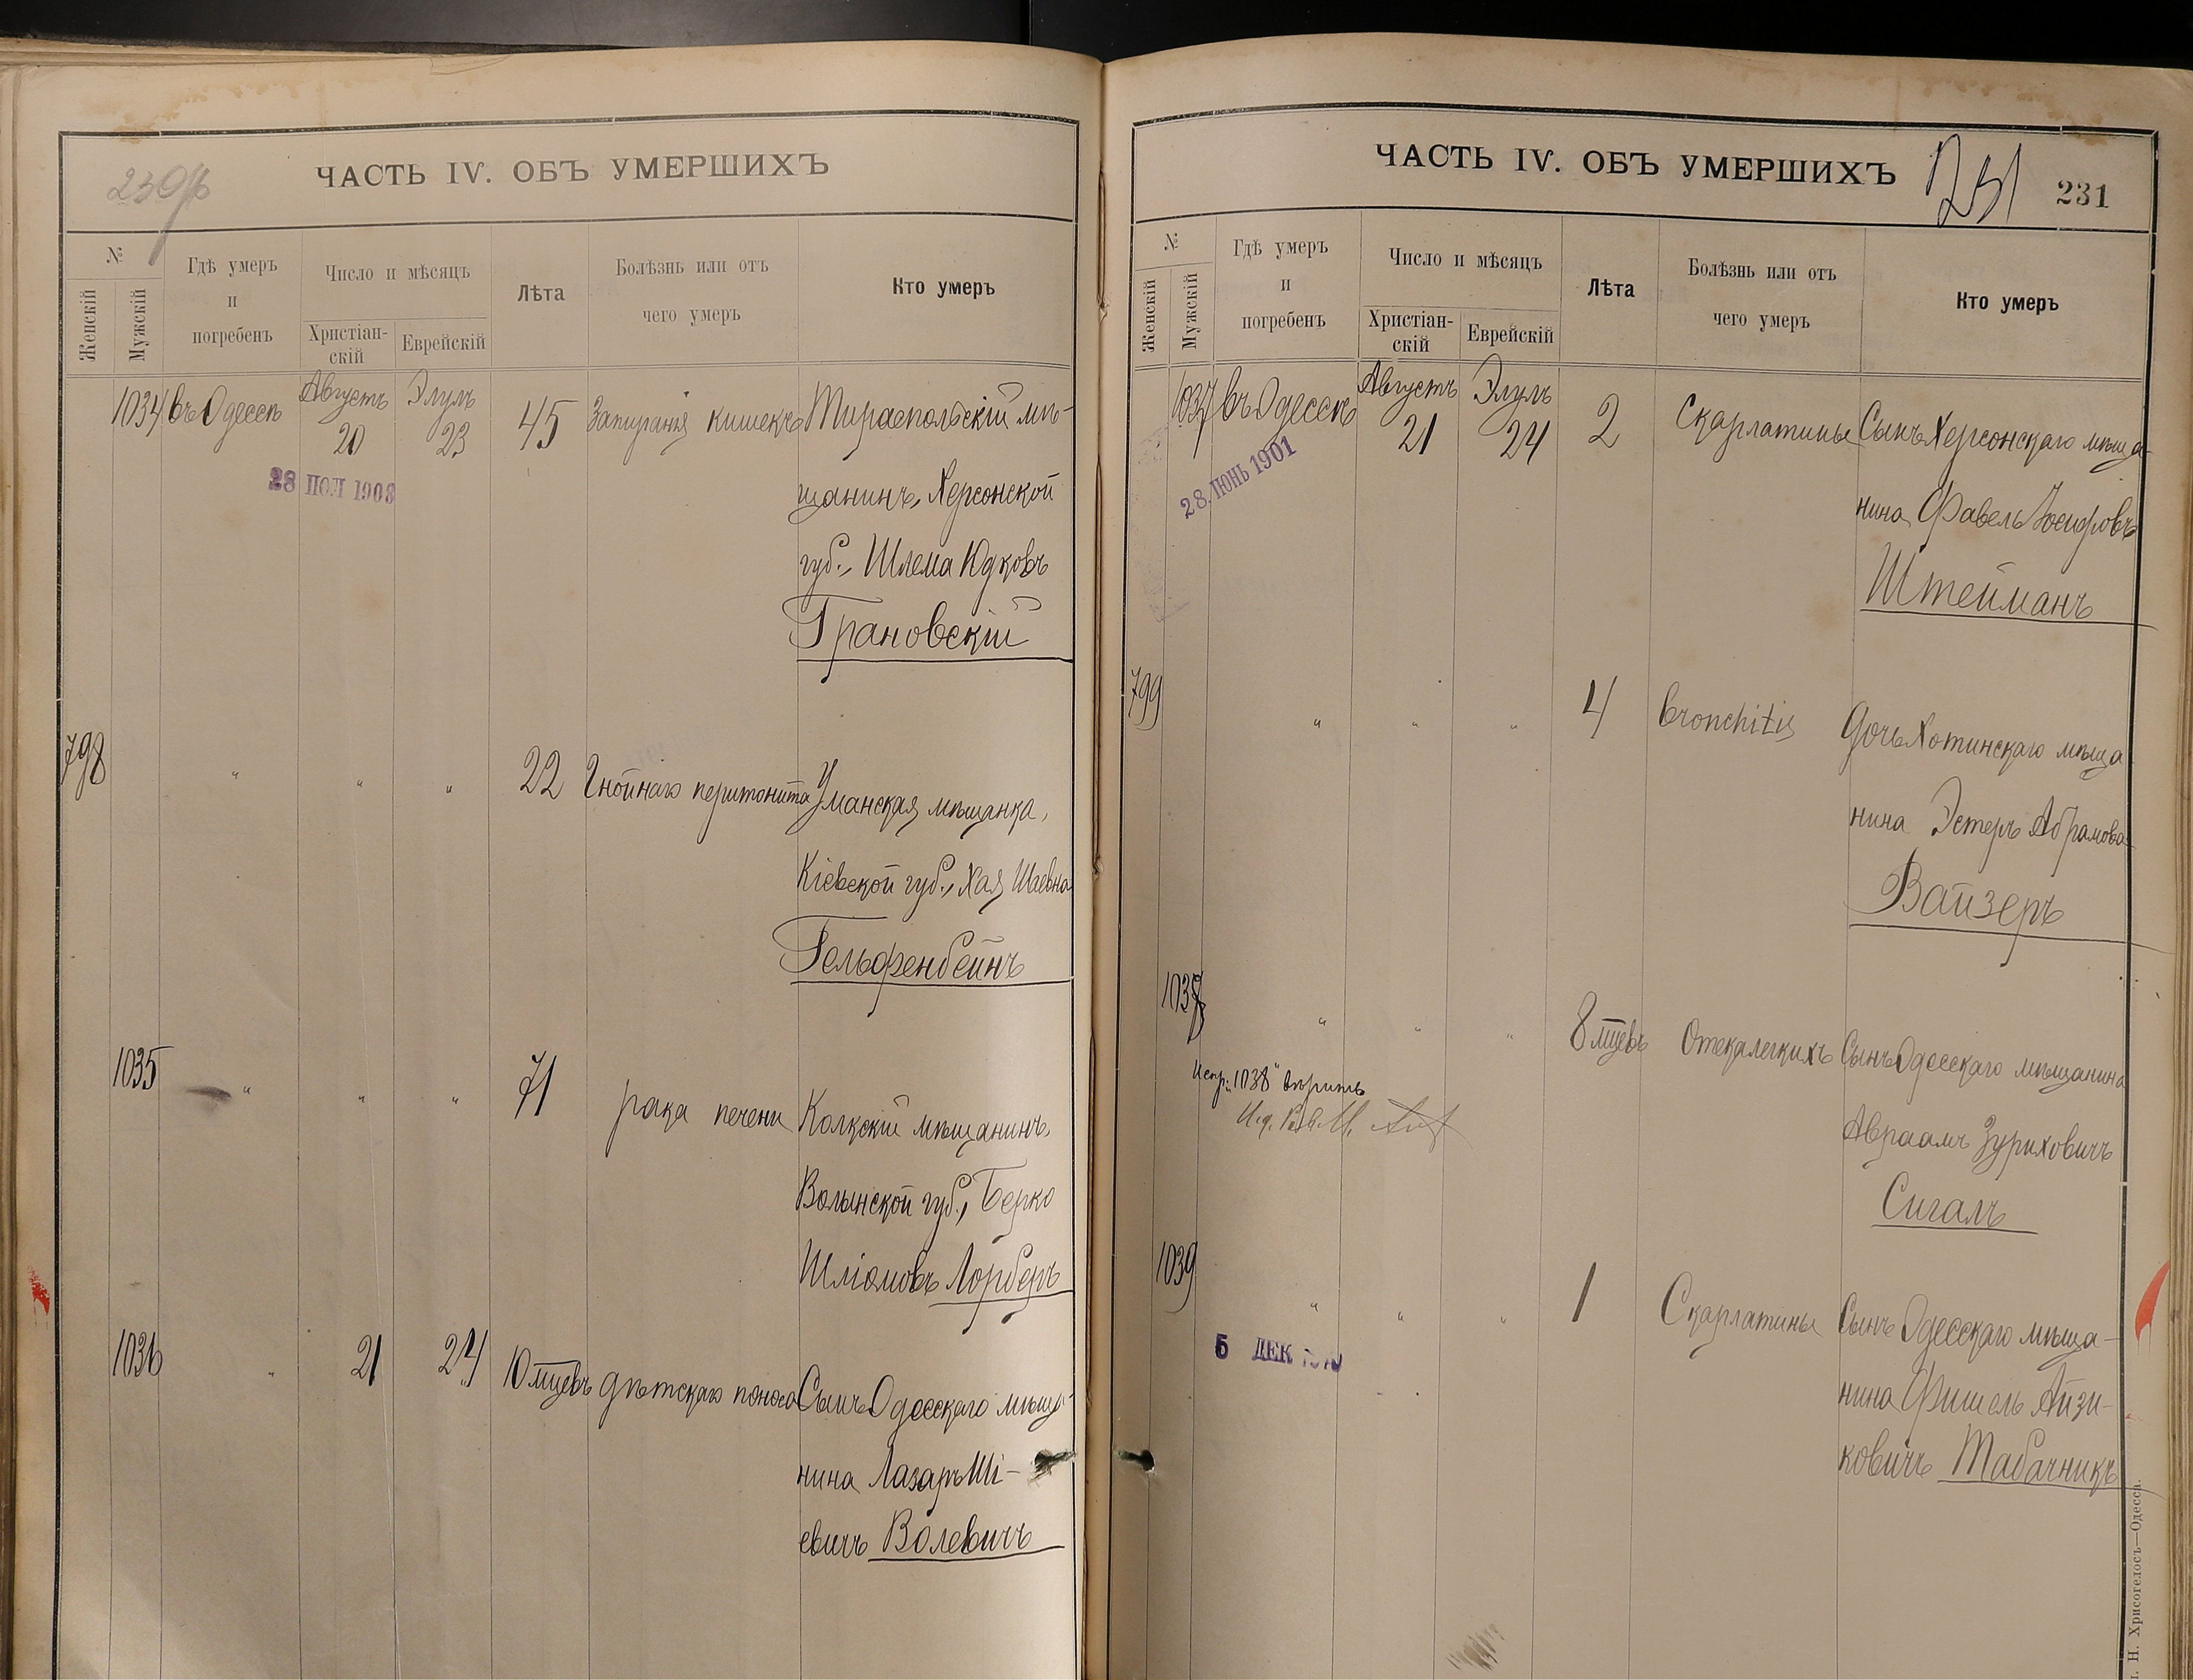 230об
ЧАСТЬ IV. ОБЪ УМЕРШИХЪ
№
Женскій
Мужскій
Гдѣ умеръ
и
погребенъ
Число и мѣсяцъ
Христіан-
скій
Еврейскій
Лѣта
Болѣзнь или отъ
чего умеръ
Кто умеръ
1034 въ Одессѣ Августъ 20 Элулъ 23 45 Запиранія кишекъ Тираспольскій мѣ-
28 ІЮЛ 1908
щанинъ, Херсонской
губ., Шлема Юдковъ
Грановскій
798 " " " 22 Гнойнаго перитонита Уманская мѣщанка,
Кіевской губ., Хая Шаевна
Гельфенбейнъ
1035 " " " 71 рака печени Колкскій мѣщанинъ,
Волынской губ., Берко
Шліомовъ Лорберъ
1036 " 21 24 10 мцевъ дѣтскаго поноса Сынъ Одесскаго мѣща-
нина Лазарь
евичъ Волевичъ
ЧАСТЬ IV. ОБЪ УМЕРШИХЪ
231
231
№
Женскій
Мужскій
Гдѣ умеръ
и
погребенъ
Число и мѣсяцъ
Христіан-
скій
Еврейскій
Лѣта
Болѣзнь или отъ
чего умеръ
Кто умеръ
1037 въ Одессѣ Августъ 21 Элулъ 24 2 Скарлатины Сынъ Херсонскаго мѣща-
28 ІЮНЬ 1901
нина Фавель Іосифовъ
Штейманъ
799 " " " 4 bronchitis Дочь Хотинскаго мѣща
нина Эстеръ Абрамова
Вайзеръ
1038 " " " 8 мцевъ Отека легкихъ Сынъ Одесскаго мѣщанина
Испр. "1038" вѣрить
Авраамъ Зуриховичъ
Сигалъ
1039 " " " 1 Скарлатины Сынъ Одесскаго мѣща-
5 ДЕК
нина Фишель Айзи-
ковичъ Табачникъ
Н. Хрисогелосъ—Одесса.